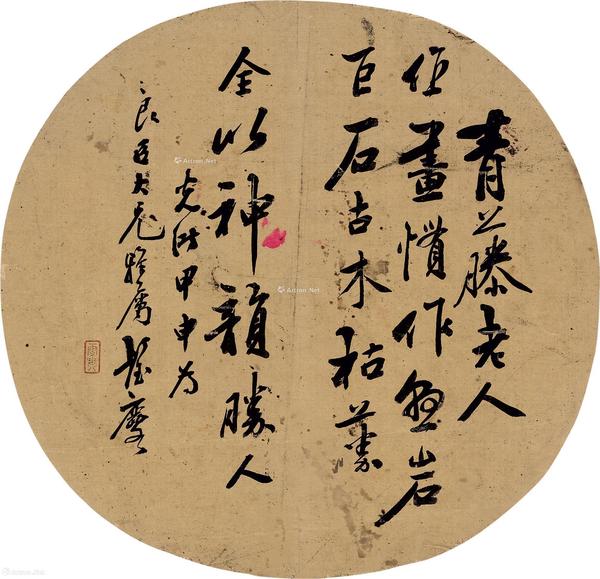 青藤老人
作畫慣作危岩
巨石古木枯藤
全以神韻勝人
光緒甲申為
良臣大兄雅屬
Artron.Net
Artron.Net
Artron.Net